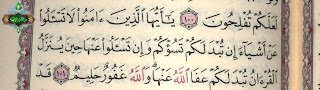 لَعَلَّكُمْ تُفْلِحُونَ ١٠٠ يَٰٓأَيُّهَا ٱلَّذِينَ ءَامَنُوا۟ لَا تَسْـَٔلُوا۟
عَنْ أَشْيَآءَ إِن تُبْدَ لَكُمْ تَسُؤْكُمْ وَإِن تَسْـَٔلُوا۟ عَنْهَا حِينَ يُنَزَّلُ
ٱلْقُرْءَانُ تُبْدَ لَكُمْ عَفَا ٱللَّهُ عَنْهَا وَٱللَّهُ غَفُورٌ حَلِيمٌ ١٠١ قَدْ